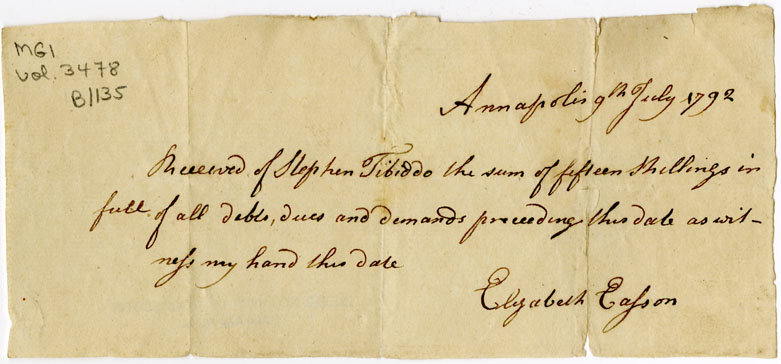 MG1
Vol. 3478
B/135
Annapolis 9th July 1792
Received of Stephen Tibiddo the sum of fifteen Shillings in
full of all debts, dues and demands preceeding this date as wit-
ness my hand this date
Elyzabeth Easson